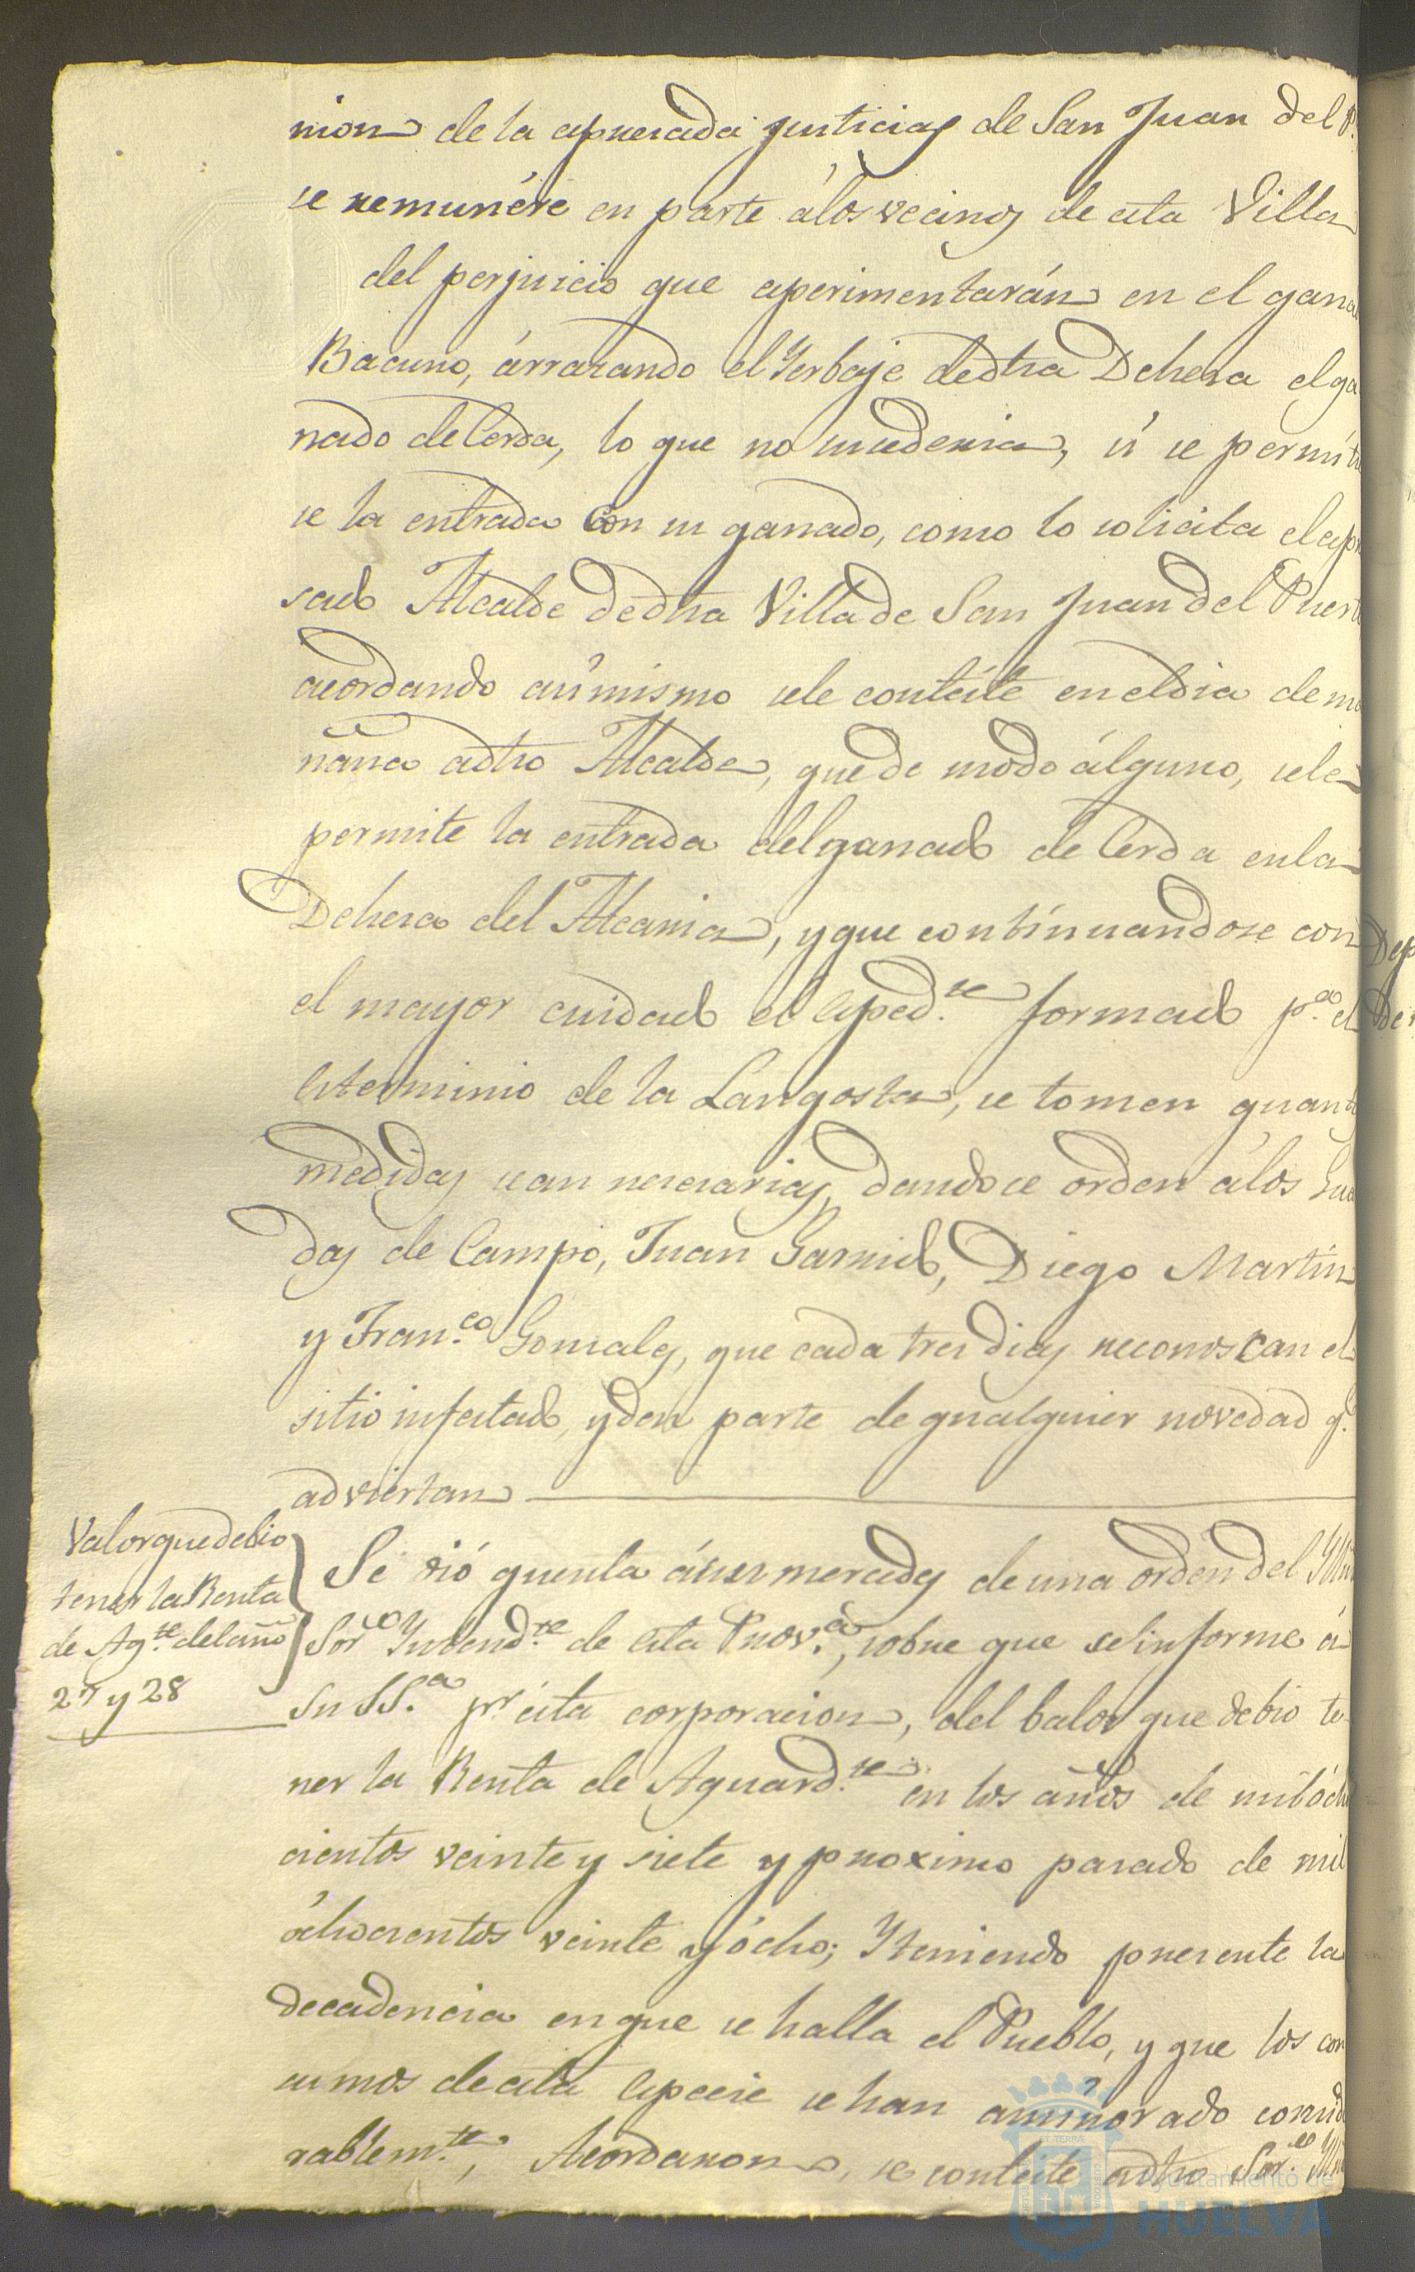 nion de la apresada justicias de San Juan del P.
se remunére en parte álos vecinos de esta Villa
del perjuicio que esperimentarán en el gana
Bacuno, árrazando el Yerbaje dedha Dehesa el ga
nado de Cerda, lo que no sucederia, si se permiti
se la entrada Con su ganado, como lo solicita el espre
sado Alcalde dedha Villa de San Juan del Puerto
acordando asímismo sele contéste en el dia de ma
ñana adho Alcalde, que de modo álguno, sele
permite la entrada del ganado de Cerda en la
Dehesa del Alcania, y que contínuandose con
el mayor cuidado el esped.te formado p.a el
esterminio de la Langosta, se tomen quantas
medidas sean necesarias, dandose orden álos Gua
das de Campo, Juan Garrido, Diego Martin
y Fran.co Gonzales, que cada tres dias reconoscan el
sitio infestado, y den parte de qualquier novedad q.e
adviertan
Valor que debio
tener la Renta
de Ag.te del año
27 y 28
Se dió quenta ásus mercedes de una orden del Yllm
Sor Yntend.te de esta Prov.a, sobre que se informe á
Su SS.a pr ésta corporacion, del balor que debio te
ner la Renta de Aguard.te en los años de mil ócho
cientos veinte y siete y proximo pasado de mil
óchocientos veinte y ócho; Y teniendo presente la
decadencia en que se halla el Pueblo, y que los con
sumos de esta especie se han aminorado conside
rablem.te, Acordaron, se conteste adho Sor. Yllm
Ayuntamiento de
HUELVA